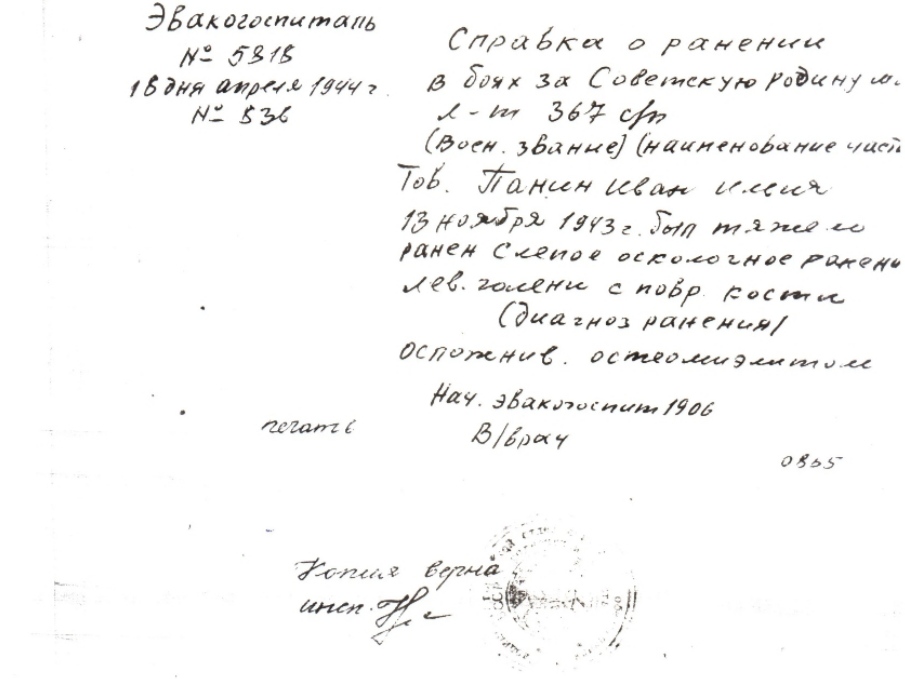 Эвакогоспиталь
№ 5818
18 дня апреля 1944 г.
№ 536
Справка о ранении
в боях за Советскую родину м.
л-т 367 с/п
(воен. звание) (наименование част
Тов. Панин Иван
13 ноября 1943 г. был тяжело
ранен Слепое осколочное ранени
лев. голени с повр. кости
(диагноз ранения)
Осложнив. остеомиэлитом
Нач. эвакогоспит 1906
печать В/врач
Копия верна
инсп.